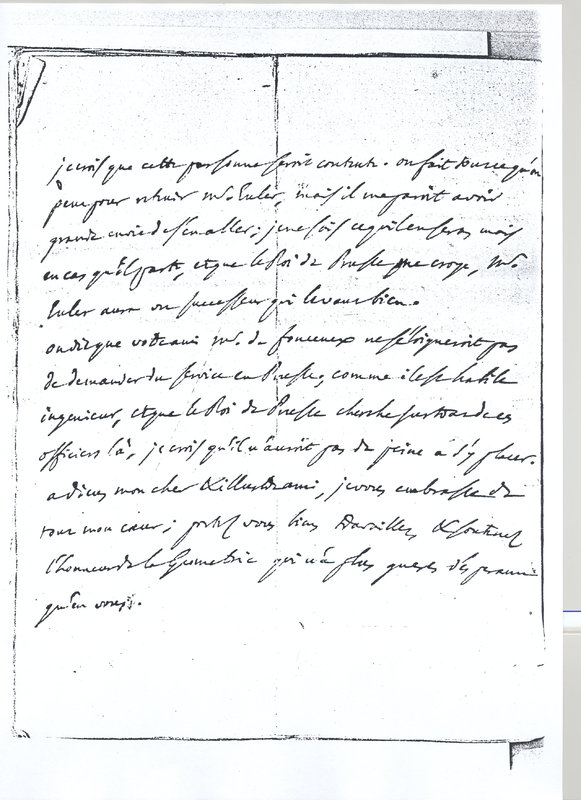 je crois que cette personne seroit contente. on fait tout ce qu'on
peut pour retenir mr. Euler, mais il me paroit avoir
grande envie de s'en aller; je ne sais ce qu'il en sera, mais
en cas qu'il parte, et que le Roi de Prusse me croye, mr.
Euler aura un successeur qui le vaut bien.
on dit que votre ami mr. de foncenex ne s'éloigneroit pas
de demander du service en Prusse, comme il est habile
ingenieur, et que le Roi de Prusse cherche surtout de ces
officiers là, je crois qu'il n'auroit pas de peine à s'y placer.
adieu mon cher & illustre ami, je vous embrasse de
tout mon cœur; portez vous bien, travaillez, & soutenez
l'honneur de la Geometrie qui n'a plus gueres d'esperance
qu'en vous.